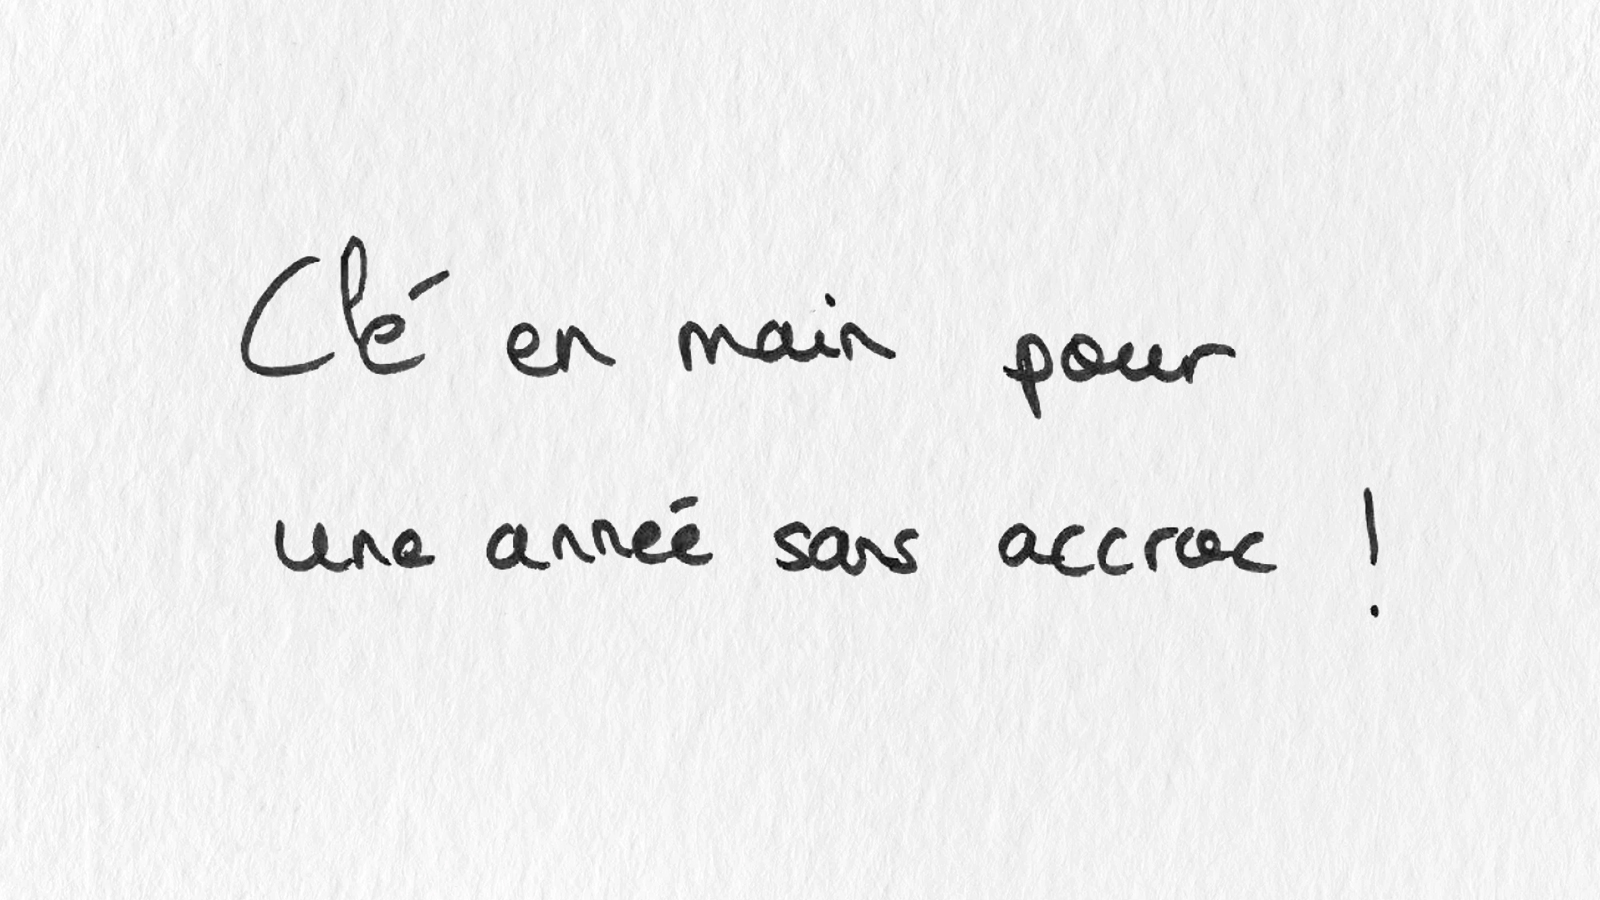 Clé en main pour
une année sans accroc !